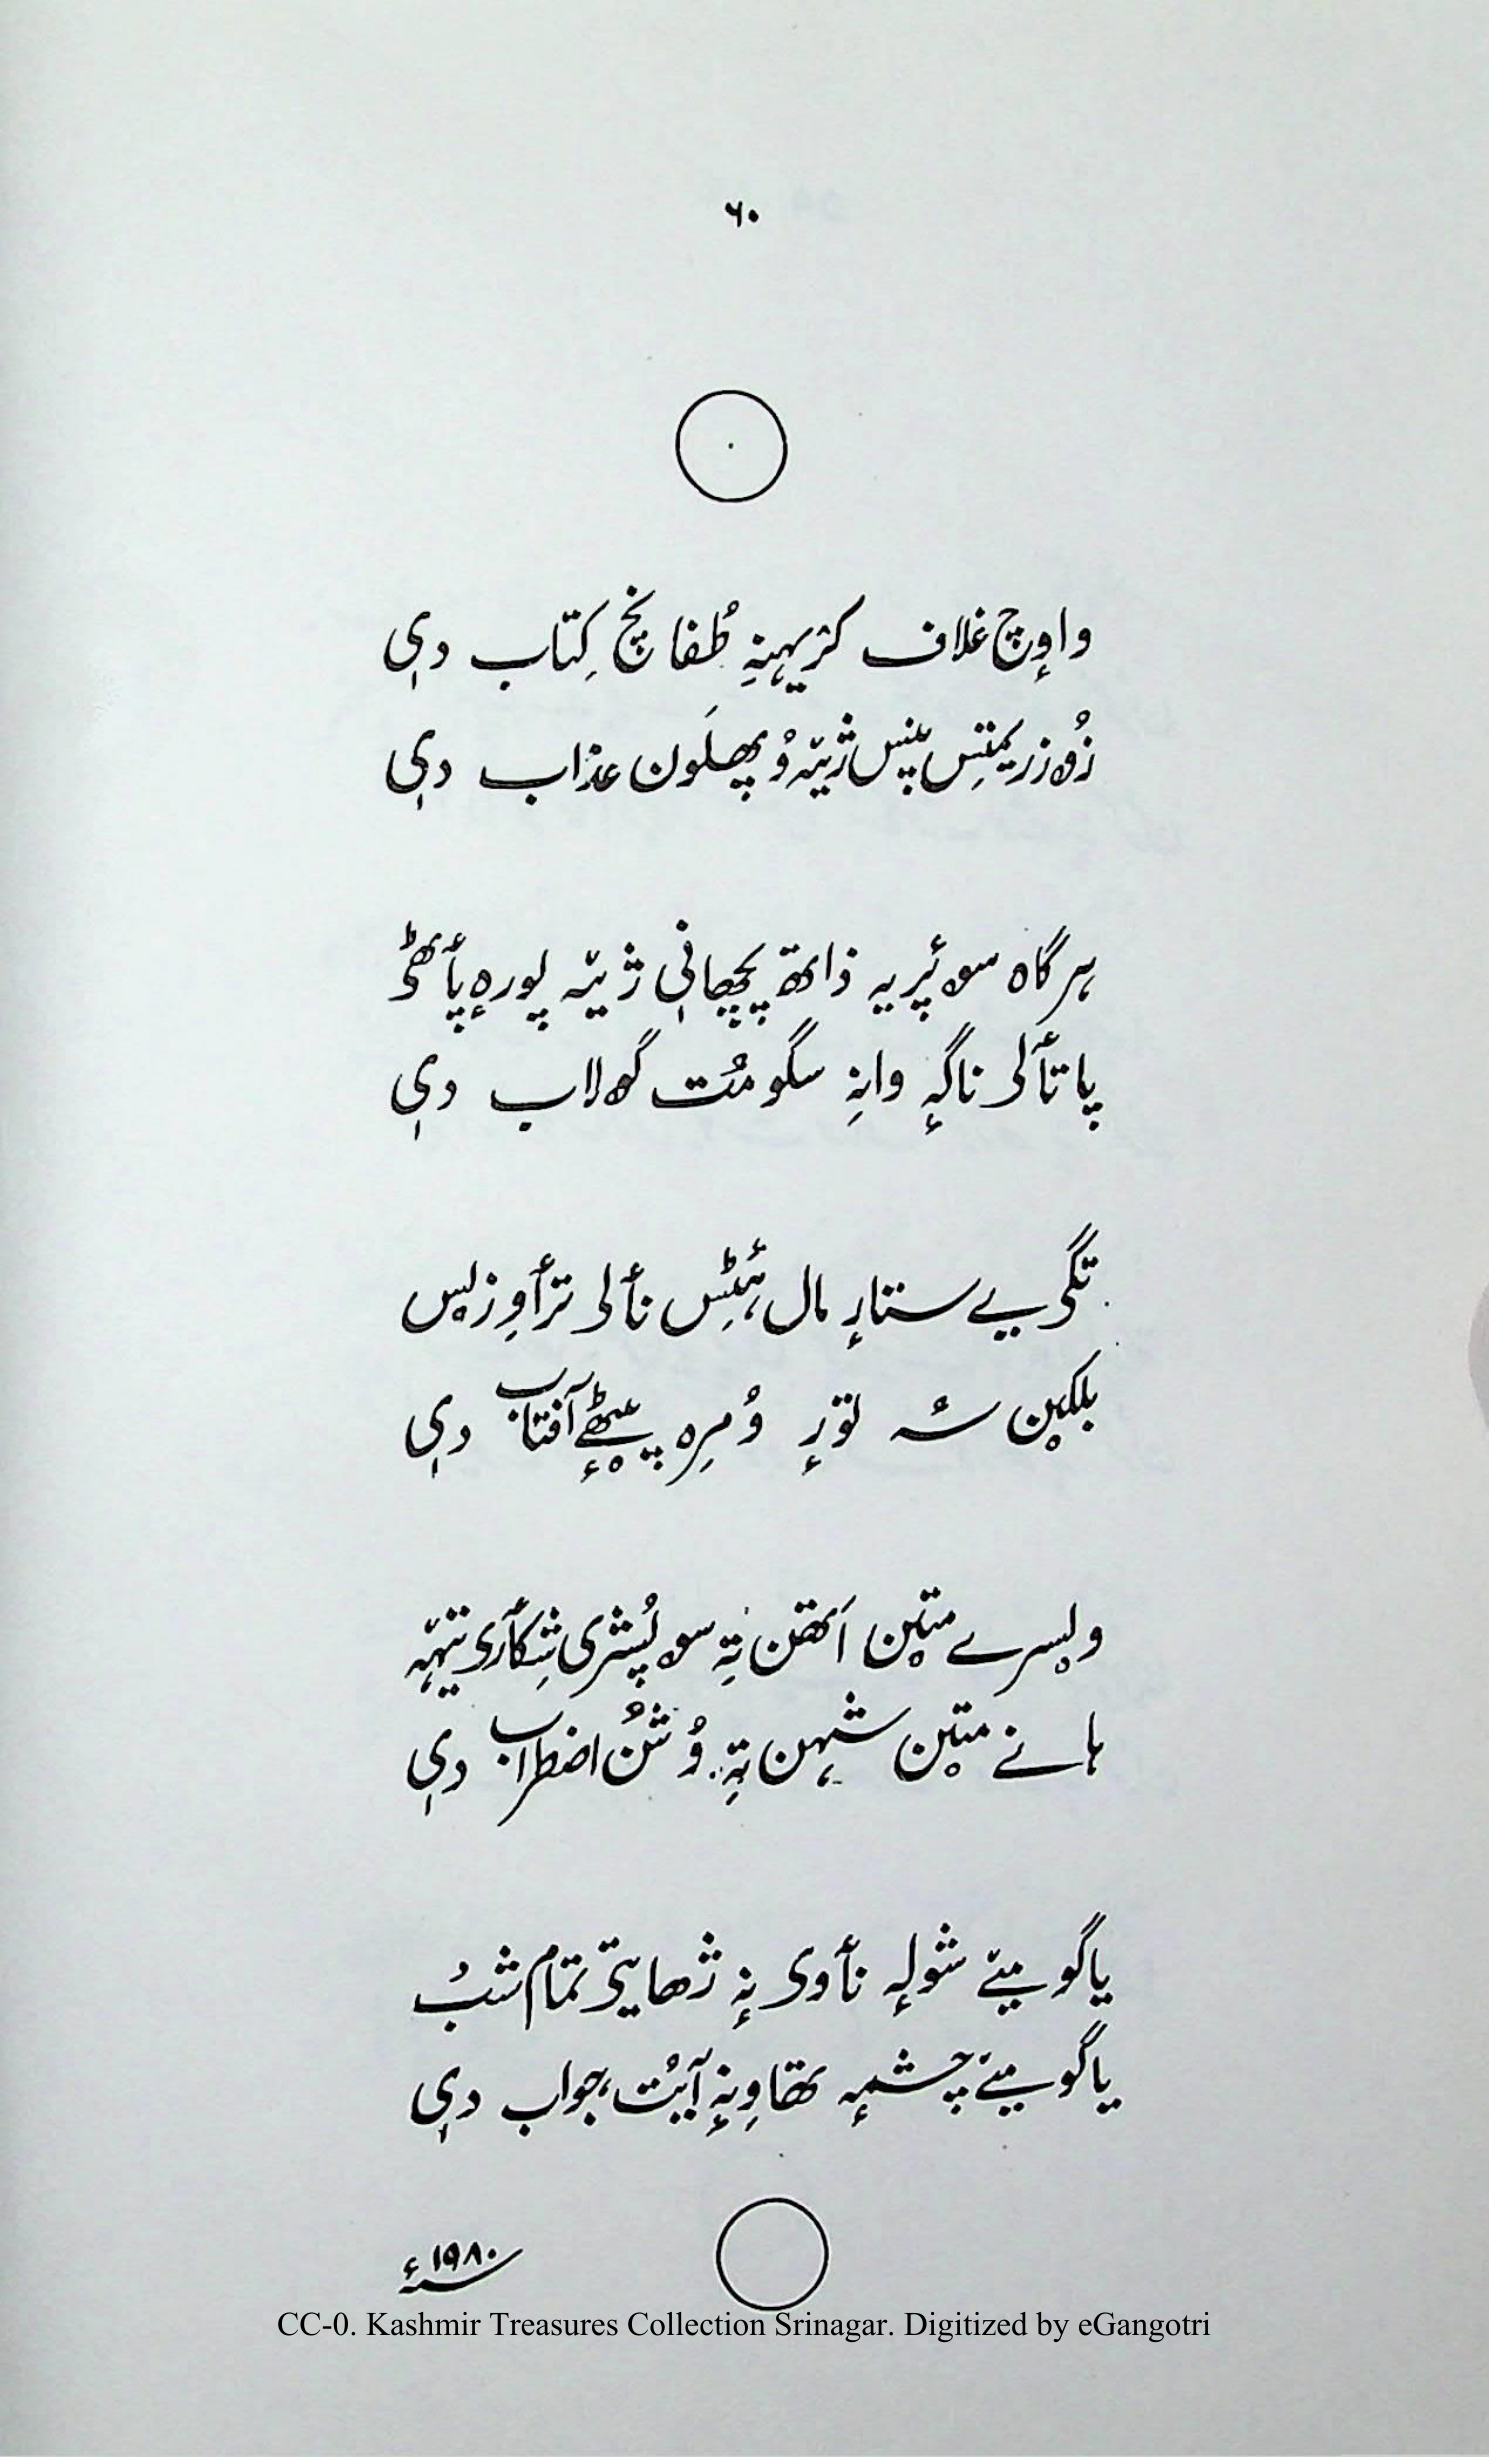 ۶۰
واوٕچ غلاف کژیہنہِ طُفانچ کِتاب دِی
زُو زریمتِس پنٕنِس ژیٚہ وُپھلَون عذاب دِی
ہرگاہ سوہٕ پُریہ ذاتھ پچھانی ژیٚہ پورہٕ پٲٹھؠ
پاتٲلؠ ناگہٕ وانہِ سگومُت گۄلاب دِی
تگی یے ستارٕ مال ہٹِس نٲلؠ ترٲوِزلیس
بلکین سُہ تورٕ وُمرِہ پیٹھےٚ آفتاب دِی
ویسرے متین اَتھن تہِ سو پُشری شِکٲری تِہنٛہ
ہانے متین شہن تہِ وُشُن اضطراب دِی
یا گو میےٚ شولہٕ نٲوی نہٕ ژھایتی تمام شبُ
یا گو میےٚ چشمہٕ تھاوِنہٕ آیُت، جواب دِی
۱۹۸۰ء
CC-0. Kashmir Treasures Collection Srinagar. Digitized by eGangotri